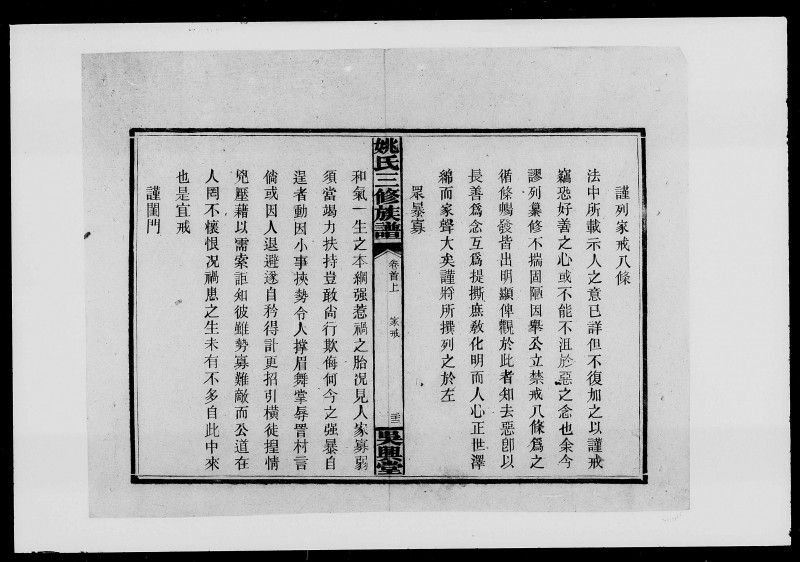 謹列家戒八條
法中所載示人之意已詳但不復加之以謹戒
竊恐好善之心或不能不沮於惡之念也余今
謬列纂修不揣固陋因舉公立禁戒八條爲之
循條暢發皆出明顯俾觀於此者知去惡卽以
長善爲念互爲提撕庶敎化明而人心正世澤
綿而家聲大矣謹將所撰列之於左
眾暴寡
姚氏三修族譜
卷首上
家戒
吳興堂
和氣一生之本綱强惹禍之胎况見人家寡弱
須當竭力扶持豈敢尙行欺侮何今之强暴自
逞者動因小事挾勢令人撑眉舞掌辱詈村言
倘或因人退避遂自矜得計更招引橫徒揑情
兇壓藉以需索詎知彼雖勢寡難敵而公道在
人罔不懷恨况禍患之生未有不多自此中來
也是宜戒
謹閨門